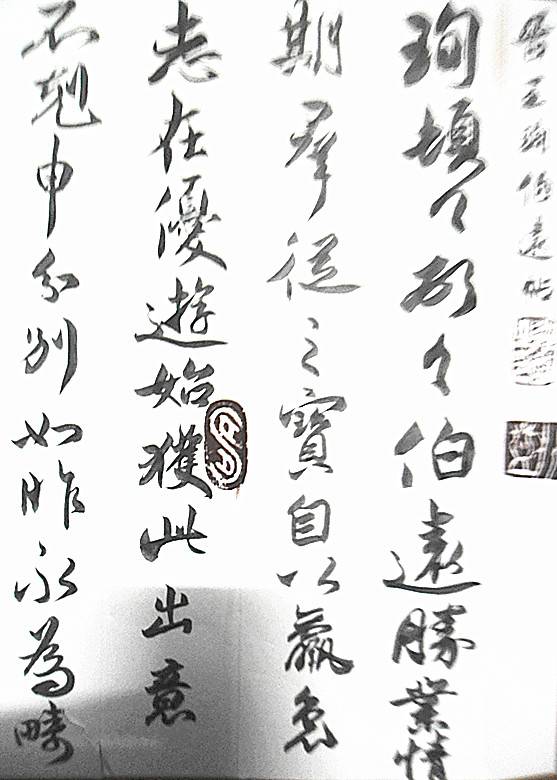 晉王珣伯遠帖
珣頓首頓首伯遠勝業情
期羣從之寶自以羸患
志在優遊始獲此出意
不剋申分別如昨永為疇